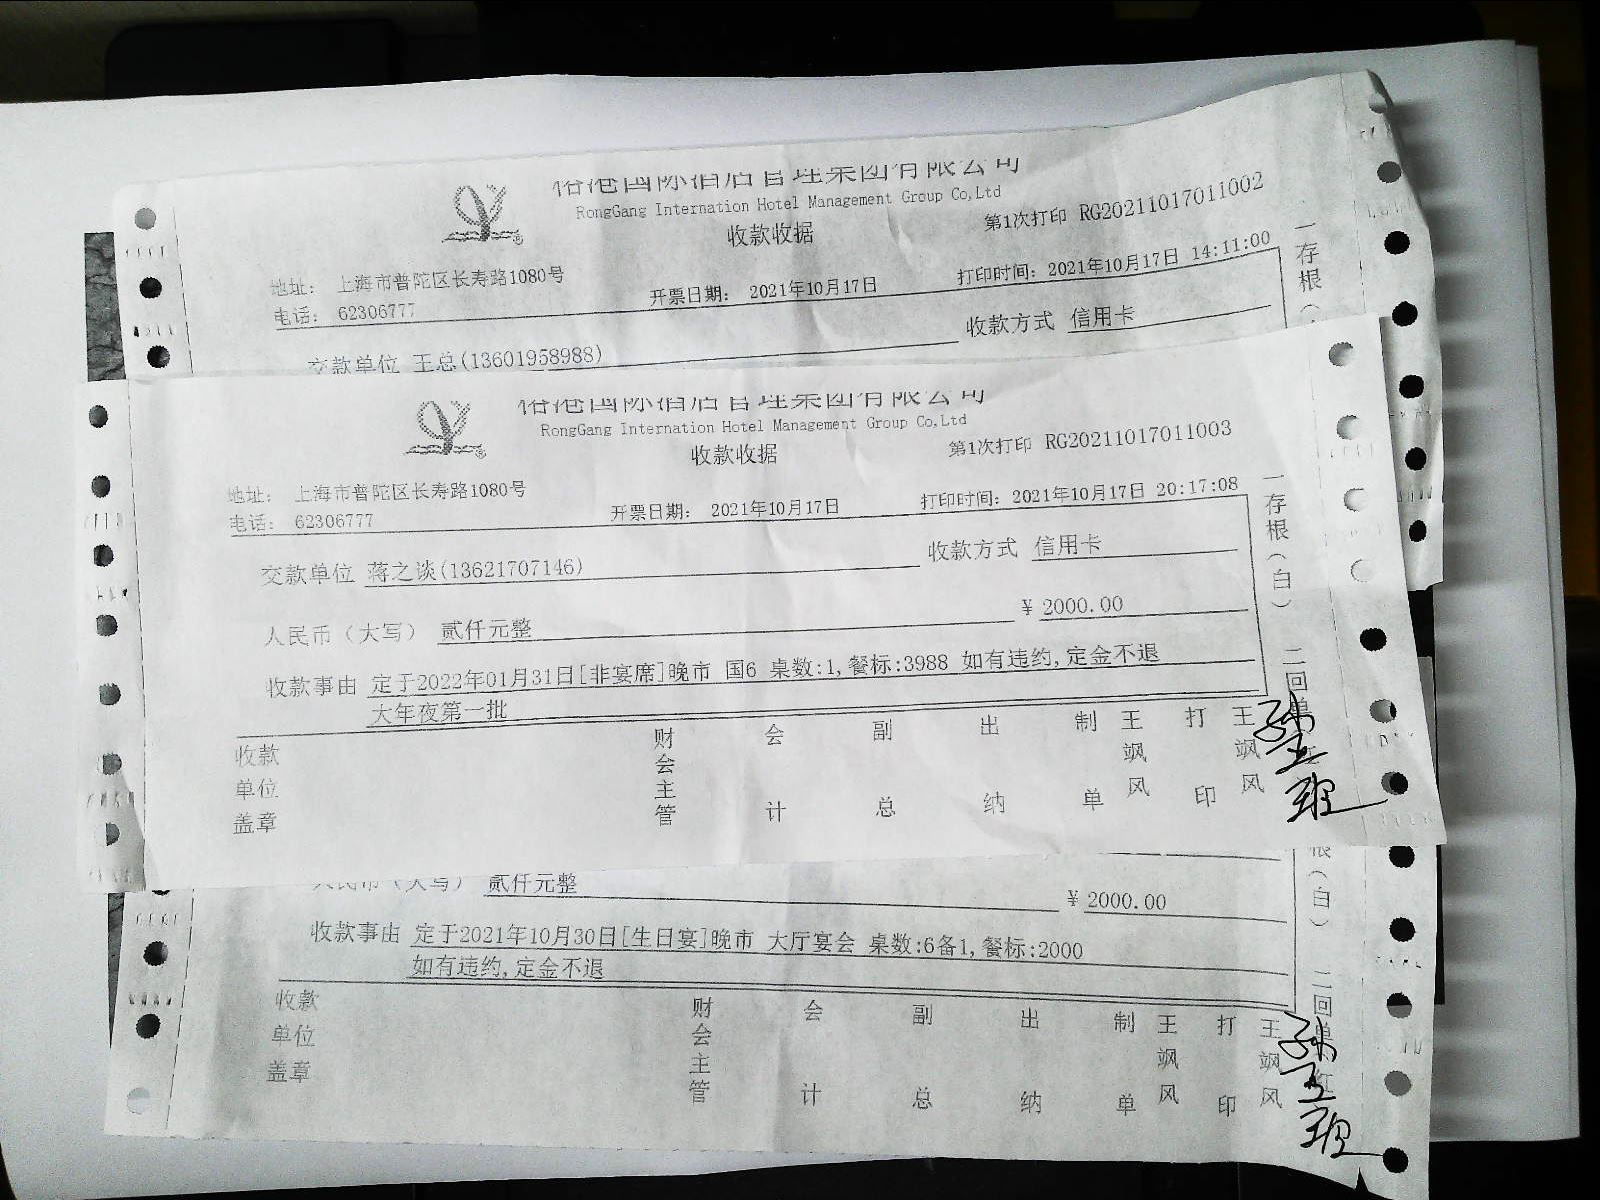 国际酒店管理集团有限公司
RongGang Internation Hotel Management Group Co,Ltd
收款收据
第1次打印 RG20211017011002
地址: 上海市普陀区长寿路1080号
电话: 62306777
开票日期: 2021年10月17日
打印时间: 2021年10月17日 14:11:00
交款单位 王总(13601958988)
收款方式 信用卡
一存根(
国际酒店管理集团有限公司
RongGang Internation Hotel Management Group Co,Ltd
收款收据
第1次打印 RG20211017011003
地址: 上海市普陀区长寿路1080号
电话: 62306777
开票日期: 2021年10月17日
打印时间: 2021年10月17日 20:17:08
交款单位 蒋之谈(13621707146)
收款方式 信用卡
人民币(大写) 贰仟元整
¥ 2000.00
收款事由 定于2022年01月31日[非宴席]晚市 国6 桌数:1,餐标:3988 如有违约,定金不退
大年夜第一批
一存根(白) 二回单
收款单位盖章
财会主管
会计
副总
出纳
制单
王飒风
打印
王飒风
人民币(大写) 贰仟元整
¥ 2000.00
收款事由 定于2021年10月30日[生日宴]晚市 大厅宴会 桌数:6备1,餐标:2000
如有违约,定金不退
根(白) 二回单
收款单位盖章
财会主管
会计
副总
出纳
制单
王飒风
打印
王飒风